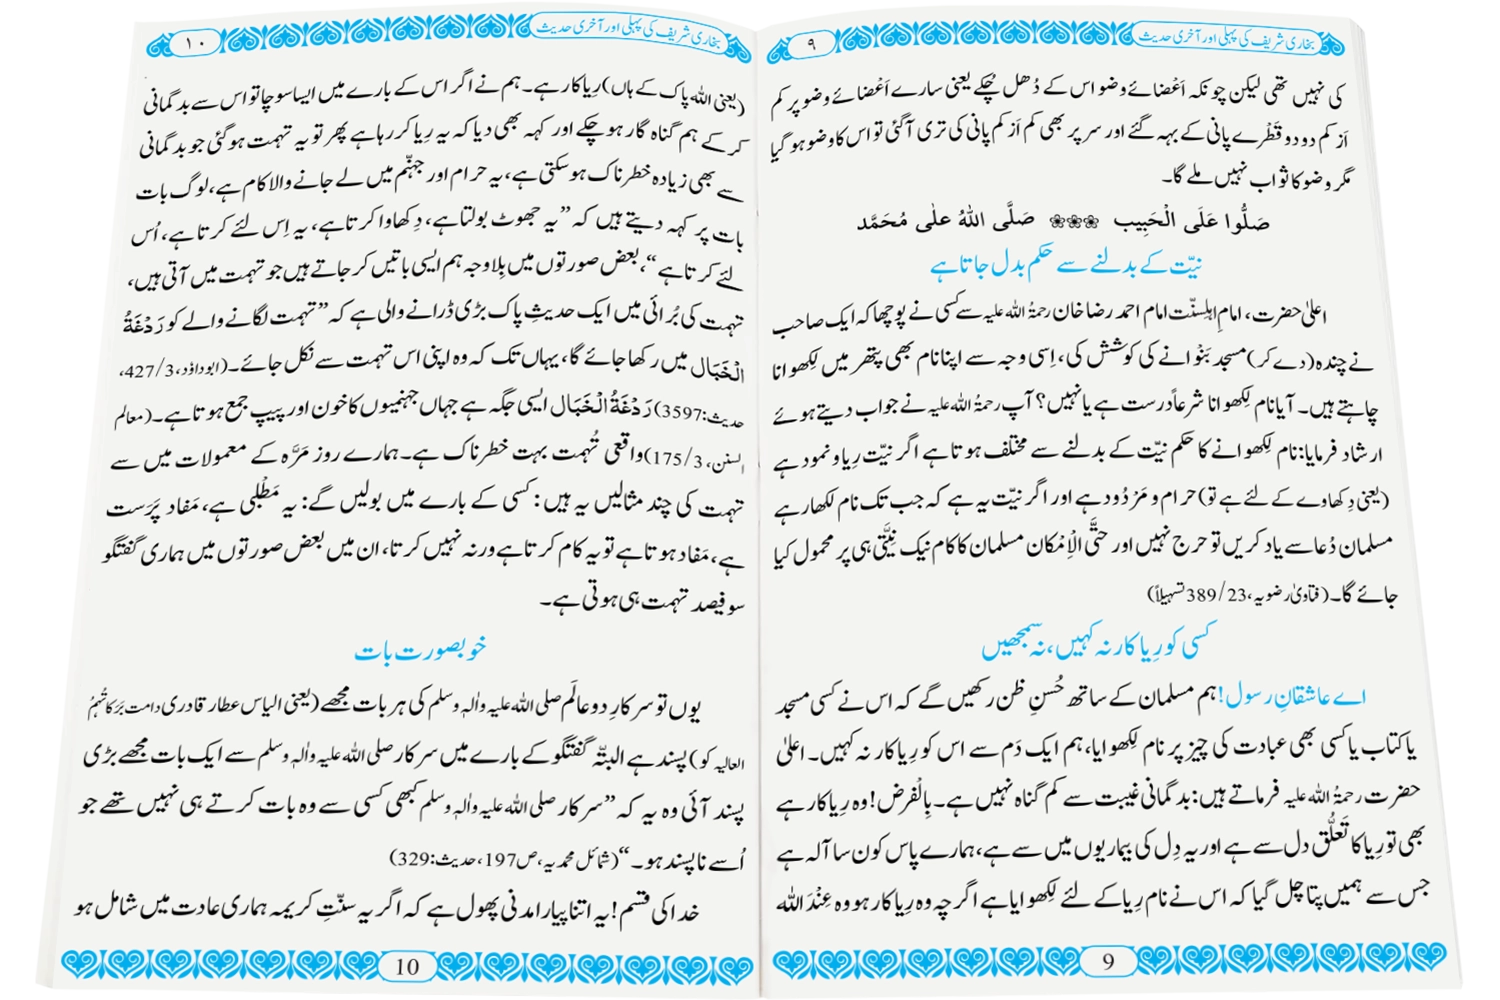 بخاری شریف کی پہلی اور آخری حدیث
۹
کی نہیں تھی لیکن چونکہ اَعْضائے وضو اس کے دُھل چُکے یعنی سارے اَعْضائے وضو پر کم
اَز کم دو دو قَطْرے پانی کے بہہ گئے اور سر پر بھی کم اَز کم پانی کی تری آگئی تو اس کا وضو ہو گیا
مگر وضو کا ثواب نہیں ملے گا۔
صَلُّوا عَلَى الْحَبِیب ❀❀❀ صَلَّى اللهُ عَلٰى مُحَمَّد
نیّت کے بدلنے سے حکم بدل جاتا ہے
اعلیٰ حضرت، امامِ اہلِسنّت امام احمد رضا خان رحمۃُ اللہ علیہ سے کسی نے پوچھا کہ ایک صاحب
نے چندہ (دے کر) مسجد بَنْوانے کی کوشش کی، اِسی وجہ سے اپنا نام بھی پتھر میں لکھوانا
چاہتے ہیں۔ آیا نام لکھوانا شرعاً درست ہے یا نہیں؟ آپ رحمۃُ اللہ علیہ نے جواب دیتے ہوئے
ارشاد فرمایا: نام لکھوانے کا حکم نیّت کے بدلنے سے مختلف ہوتا ہے اگر نیّت رِیا و نمود ہے
(یعنی دِکھاوے کے لئے ہے تو) حرام و مَرْدُود ہے اور اگر نیّت یہ ہے کہ جب تک نام لکھا رہے
مسلمان دُعا سے یاد کریں تو حرج نہیں اور حتَّی الْاِمْکان مسلمان کا کام نیک نیّتی ہی پر محمول کیا
جائے گا۔ (فتاویٰ رضویہ، 23/389 تسہیلاً)
کسی کو رِیاکار نہ کہیں، نہ سمجھیں
اے عاشقانِ رسول! ہم مسلمان کے ساتھ حُسنِ ظن رکھیں گے کہ اس نے کسی مسجد
یا کتاب یا کسی بھی عبادت کی چیز پر نام لکھوایا، ہم ایک دَم سے اس کو رِیاکار نہ کہیں۔ اعلیٰ
حضرت رحمۃُ اللہ علیہ فرماتے ہیں: بدگمانی غیبت سے کم گناہ نہیں ہے۔ بِالْفرض! وہ رِیاکار ہے
بھی تو رِیا کا تَعَلُّق دل سے ہے اور یہ دِل کی بیماریوں میں سے ہے، ہمارے پاس کون سا آلہ ہے
جس سے ہمیں پتا چل گیا کہ اس نے نام رِیا کے لئے لکھوایا ہے اگرچہ وہ رِیاکار ہو وہ عِنْدَ اللہ
9
بخاری شریف کی پہلی اور آخری حدیث
۱۰
(یعنی اللہ پاک کے ہاں) رِیاکار ہے۔ ہم نے اگر اس کے بارے میں ایسا سوچا تو اس سے بدگمانی
کر کے ہم گناہ گار ہو چکے اور کہہ بھی دیا کہ یہ رِیا کر رہا ہے پھر تو یہ تہمت ہو گئی جو بدگمانی
سے بھی زیادہ خطرناک ہو سکتی ہے، یہ حرام اور جہنّم میں لے جانے والا کام ہے، لوگ بات
بات پر کہہ دیتے ہیں کہ ”یہ جھوٹ بولتا ہے، دِکھاوا کرتا ہے، یہ اِس لئے کرتا ہے، اُس
لئے کرتا ہے“، بعض صورتوں میں بِلاوجہ ہم ایسی باتیں کر جاتے ہیں جو تہمت میں آتی ہیں،
تہمت کی بُرائی میں ایک حدیثِ پاک بڑی ڈرانے والی ہے کہ ”تہمت لگانے والے کو رَدْغَةُ
الْخَبَال میں رکھا جائے گا، یہاں تک کہ وہ اپنی اس تہمت سے نکل جائے۔ (ابوداؤد، 3/427،
حدیث: 3597) رَدْغَةُ الْخَبَال ایسی جگہ ہے جہاں جہنمیوں کا خون اور پیپ جمع ہوتا ہے۔ (معالم
السنن، 3/175) واقعی تُہمت بہت خطرناک ہے۔ ہمارے روز مَرَّہ کے معمولات میں سے
تہمت کی چند مثالیں یہ ہیں: کسی کے بارے میں بولیں گے: یہ مَطْلبی ہے، مَفاد پَرَست
ہے، مَفاد ہوتا ہے تو یہ کام کرتا ہے ورنہ نہیں کرتا، ان میں بعض صورتوں میں ہماری گفتگو
سو فیصد تہمت ہی ہوتی ہے۔
خوبصورت بات
یوں تو سرکارِ دو عالَم صلی اللہ علیہ والہٖ وسلم کی ہر بات مجھے (یعنی الیاس عطار قادری دامت بَرَکاتُہمُ
العالیہ کو) پسند ہے البتّہ گفتگو کے بارے میں سرکار صلی اللہ علیہ والہٖ وسلم سے ایک بات مجھے بڑی
پسند آئی وہ یہ کہ ”سرکار صلی اللہ علیہ والہٖ وسلم کبھی کسی سے وہ بات کرتے ہی نہیں تھے جو
اُسے ناپسند ہو۔“ (شمائل محمدیہ، ص197، حدیث: 329)
خدا کی قسم! یہ اتنا پیارا مدنی پھول ہے کہ اگر یہ سنّتِ کریمہ ہماری عادت میں شامل ہو
10